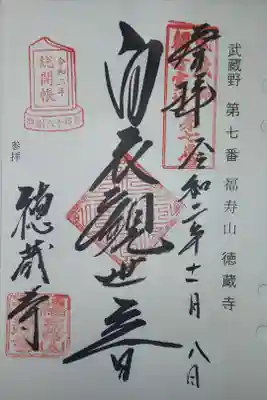 武蔵野 第七番 福寿山 徳蔵寺
奉拝 令和二年十一月八日
白衣観世音
徳蔵寺
令和二年
総開帳
参拝